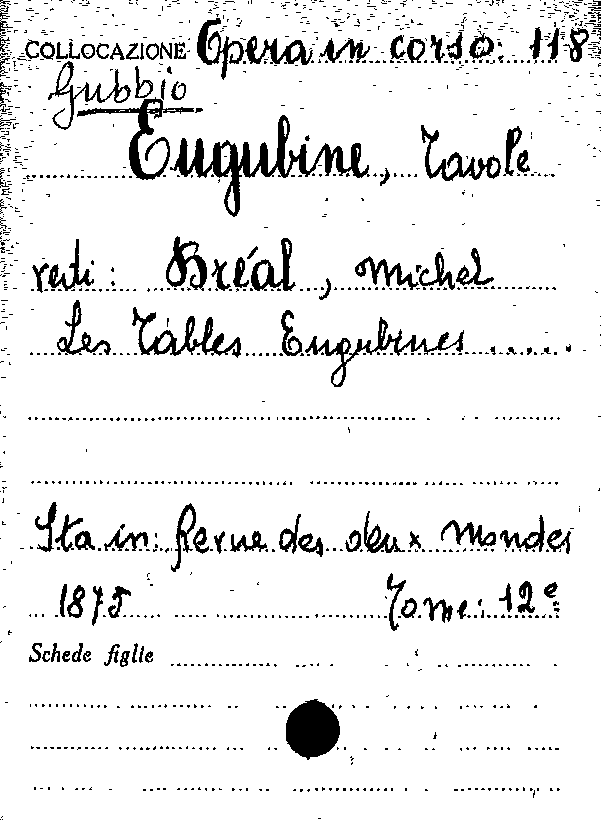 COLLOCAZIONE Opera in corso: 118
Gubbio
Eugubine, Tavole
vedi: Bréal, Michel
Les Tables Eugubines .....
Sta in: Revue des deux Mondes
1875 Tome: 12e
Schede figlie